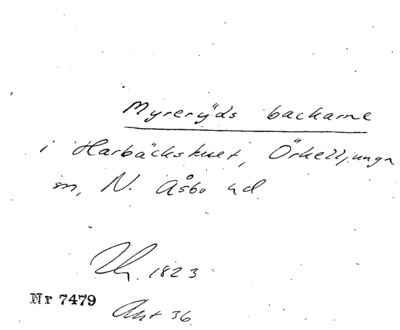 Myreryds backarne
i Harbäckshult, Örkelljunga
m, N. Åsbo hd
Th. 1823
Nr 7479
Akt 36